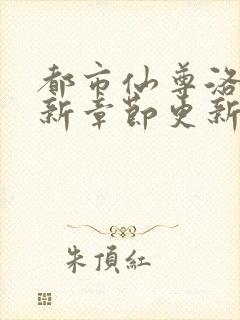 都市仙尊洛
新章節更新
朱頂紅